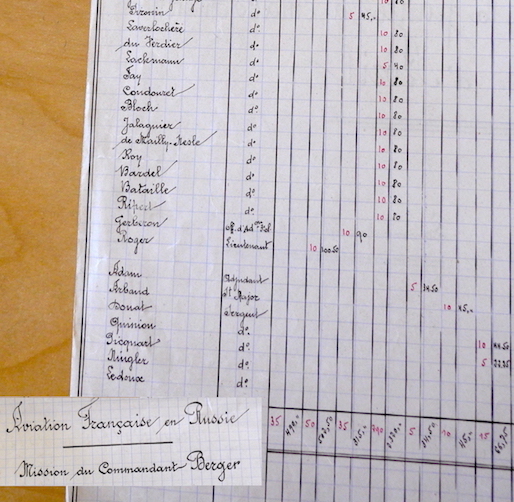 10 80
d° 5 45,-
Laverlochère d° 10 80
du Verdier d° 10 80
Lackmann d° 5 40
Fay d° 10 80
Condouret d° 10 80
Bloch d° 10 80
Jalaguier d° 10 80
de Mailly-Nesle d° 10 80
Roy d° 10 80
Bardel d° 10 80
Bataille d° 10 80
Ripert d° 10 80
Gerberon 10 90
Roger Lieutenant 10 100 50
Adam Adjudant 5 34,50
Arbaud Major
Donat Sergent 10 45,-
Guinion d°
Picquart d° 10 44.50
Mingler d° 5 22.25
Ledoux d°
35 50 502,50 35 315,- 290 2320,- 5 34,50 10 45,- 15 66,75
Aviation Française en Russie
Mission du Commandant Berger